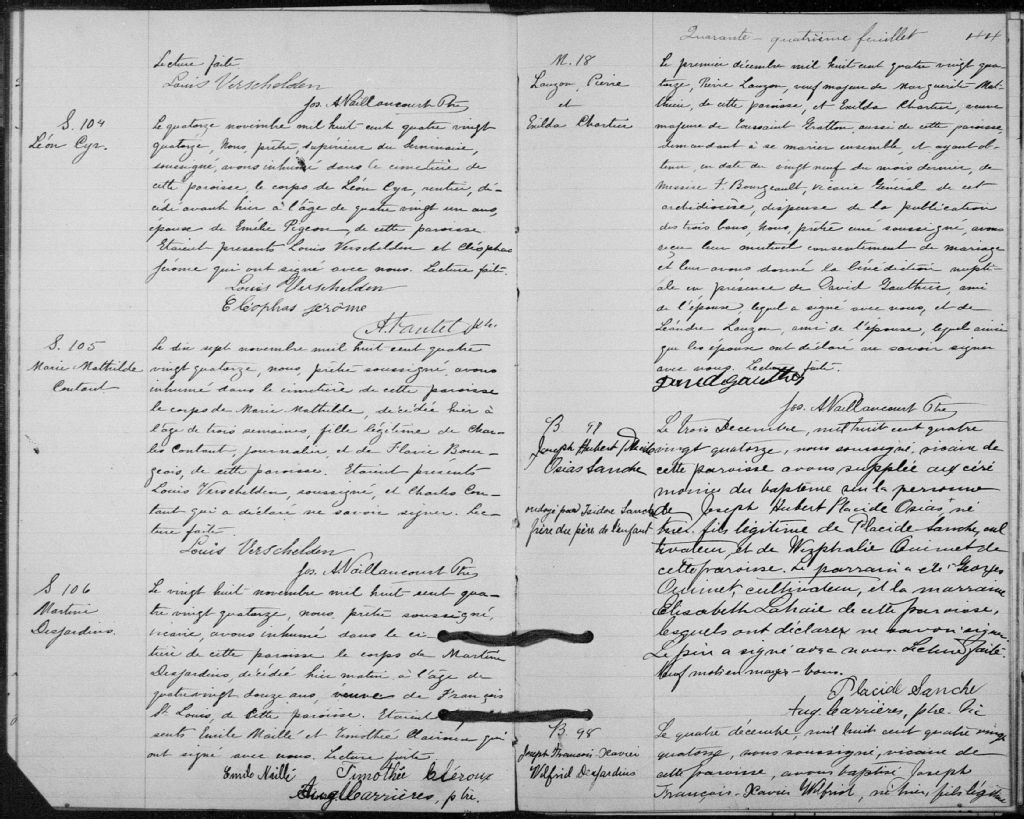 Lecture faite
Louis Verschelden
Jos. A. Vaillancourt Ptre
S. 104
Léon Cyr.
Le quatorze novembre mil huit-cent quatre vingt
quatorze, Nous, prêtre, supérieur du Séminaire,
soussigné, avons inhumé dans le cimetière de
cette paroisse, le corps de Léon Cyr, rentier, dé-
cédé avant hier à l'âge de quatre vingt un ans,
épouse de Emélie Pigeon, de cette paroisse.
Etaient présents Louis Verschelden et Cléophas
Jérome qui ont signé avec nous. Lecture faite.
Louis Verschelden
Cléophas Jérôme
S. 105
Marie Mathilde
Contant
Le dix sept novembre mil huit cent quatre
vingt quatorze, nous, prêtre soussigné, avons
inhumé dans le cimetière de cette paroisse
le corps de Marie Mathilde, décédée hier à
l'âge de trois semaines, fille légitime de Char-
les Contant, journalier, et de Flavie Bour-
geois, de cette paroisse. Etaient présents
Louis Verschelden, soussigné, et Charles Con-
tant qui a déclaré ne savoir signer. Lec-
ture faite.
Louis Verschelden
Jos. A. Vaillancourt Ptre
S 106
Martine
Desjardins.
Le vingt huit novembre mil huit cent qua-
tre vingt quatorze, nous, prêtre soussigné,
vicaire, avons inhumé dans le ci-
tière de cette paroisse le corps de Martine
Desjardins, décédée hier matin à l'âge de
quatre vingt douze ans, veuve de François
St Louis, de cette paroisse. Etaient
sents Emile Maillé et Timothée qui
ont signé avec nous. Lecture faite
Emile Maillé Timothée Cléroux
Aug. Carrières, ptre.
Quarante-quatrième feuillet 44
M. 18
Lauzon, Pierre
et
Exilda Chartier
Le premier décembre mil huit cent quatre vingt qua-
torze, Pierre Lauzon, veuf majeur de Marguerite Mat-
thieu, de cette paroisse, et Exilda Chartier, veuve
majeure de Toussaint Gratton, aussi de cette paroisse,
demandant à se marier ensemble, et ayant ob-
tenu, en date du vingt neuf du mois dernier, de
Messire F. Bourgeault, vicaire Général de cet
archidiocèse, dispense de la publication
des trois bans, Nous, prêtre curé soussigné, avons
reçu leur mutuel consentement de mariage
et leur avons donné la bénédiction nupti-
ale en présence de David Gauthier, ami
de l'épouse, lequel a signé avec nous, et de
Léandre Lauzon, ami de l'épouse, lequel ainsi
que les épouse ont déclaré ne savoir signer
avec nous. Lecture faite.
David Gauthier
Jos. A. Vaillancourt Ptre
B 97
Joseph Hubert Placide
Osias Sanche
ondoyé par Isidore Sanche
frère du père de l'enfant
Le trois Decembre, mil huit cent quatre
vingt quatorze, nous soussigné, vicaire de
cette paroisse avons supplée aux céré
monies du baptême sur la personne
de Joseph Hubert Placide Osias, né
hier, fils légitime de Placide Sanche, cul
tivateur, et de Wizphalie Ouimet de
cette paroisse. Le parrain a été Georges
Ouimet, cultivateur, et la marraine
Elisabeth Lahaie de cette paroisse,
lesquels ont déclarer ne savoir signer
Le père a signé avec nous. Lecture faite.
Placide Sanche
Aug. Carrières, ptre. Vic
B 98
Joseph François Xavier
Wilfrid Desjardins
Le quatre décembre, mil huit cent quatre vingt
quatorze, nous soussigné, vicaire de
cette paroisse, avons baptisé Joseph
François-Xavier Wilfrid, né hier, fils légitime